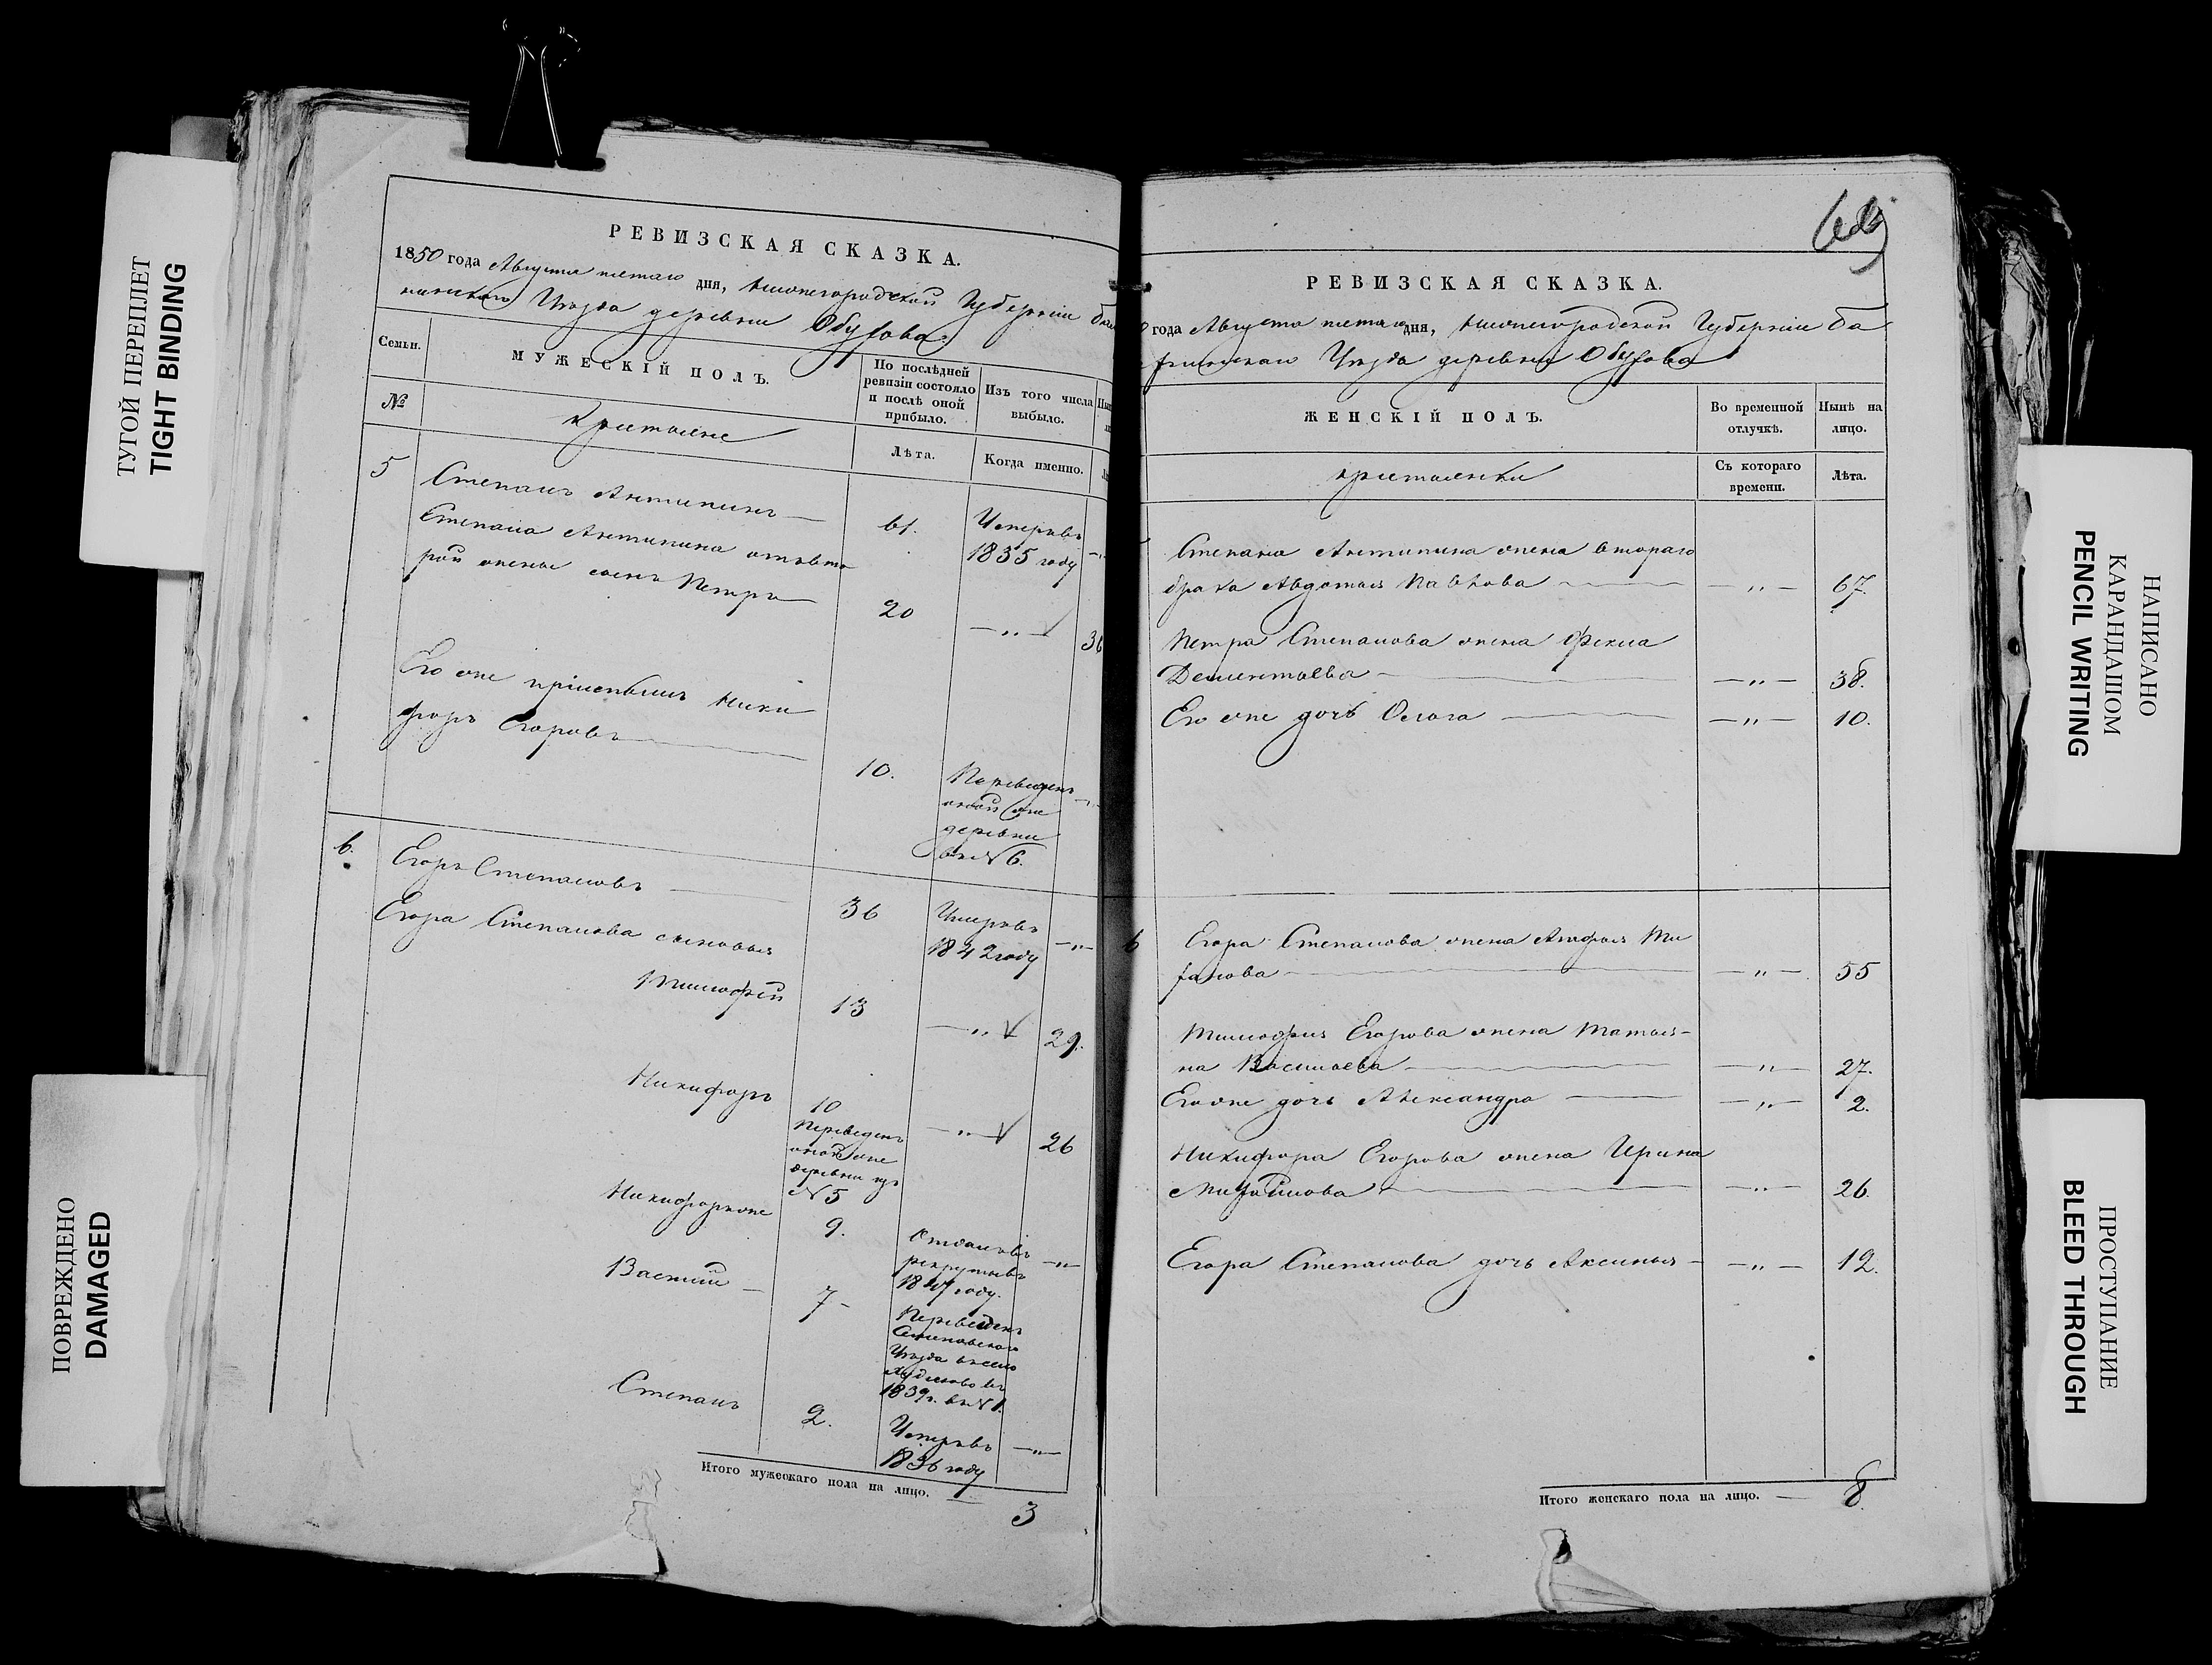 ТУГОЙ ПЕРЕПЛЕТ
TIGHT BINDING
ПОВРЕЖДЕНО
DAMAGED
РЕВИЗСКАЯ СКАЗКА.
1850 года Августа пятаго дня, Нижегородской Губерніи
Уѣзда деревни Обухова
Семьи.
МУЖЕСКІЙ ПОЛЪ.
По послѣдней ревизіи состояло и послѣ оной прибыло.
Изъ того числа выбыло.
№
Крестьяне
Лѣта.
Когда именно.
5
Степанъ Антипинъ
61.
Умеръ въ
1835 году
Степана Антипина отъ вто
рой жены сынъ Петръ
20
— „ —
36
Его же пріемышъ Ники
форъ Егоровъ
10.
Переведенъ
оной же
деревни
въ № 6.
6.
Егоръ Степановъ
36
Умеръ въ
1842 году
— „ —
Егора Степанова сыновья
Тимофей
13
— „ —
29.
Никифоръ
10
Переведенъ
оной же
деревни изъ
№ 5
— „ —
26
Никифоръ же
9.
Отданъ въ
рекруты въ
году.
— „ —
Василій
7
Переведенъ
Семеновскаго
Уѣзда в село
1839 г. въ № 1.
Степанъ
2.
Умеръ въ
1836 году
— „ —
Итого мужескаго пола на лицо.
3
РЕВИЗСКАЯ СКАЗКА.
года Августа пятаго дня, Нижегородской Губерніи Ба
Уѣзда деревни Обухова
ЖЕНСКІЙ ПОЛЪ.
Во временной отлучкѣ.
Нынѣ на лицо.
Крестьянки
Съ котораго времени.
Лѣта.
Степана Антипина жена втораго
брака Авдотья Павлова
— „ —
67.
Петра Степанова жена Фекла
Дементьева
— „ —
38.
Его же дочь Ольга
— „ —
10.
6
Егора Степанова жена
— „ —
55
Тимофея Егорова жена Татья-
на Васильева
— „ —
27.
Его же дочь Александра
— „ —
2.
Никифора Егорова жена Ирина
Михайлова
— „ —
26.
Егора Степанова дочь Аксинья
— „ —
12.
Итого женскаго пола на лицо.
8.
НАПИСАНО
КАРАНДАШОМ
PENCIL WRITING
ПРОСТУПАНИЕ
BLEED THROUGH